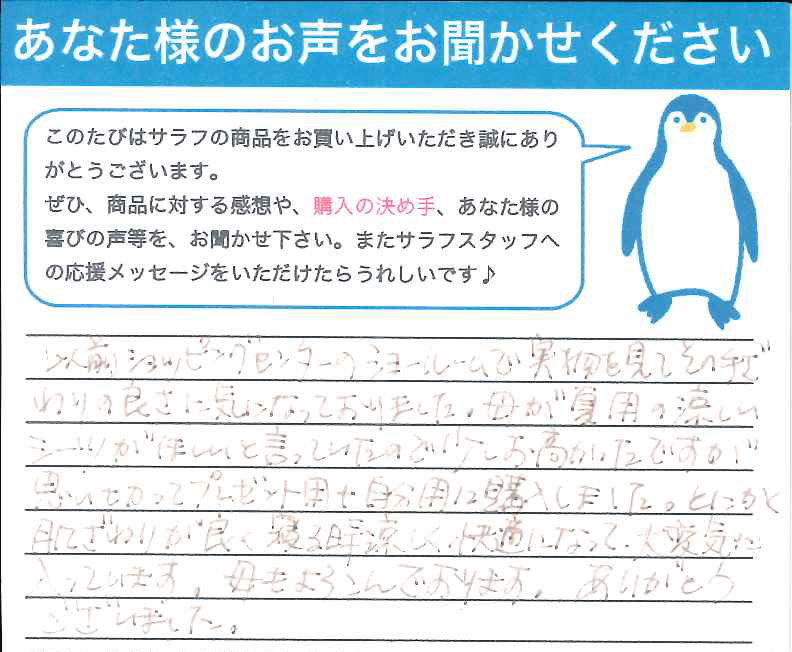 あなた様のお声をお聞かせください
このたびはサラフの商品をお買い上げいただき誠にあり
がとうございます。
ぜひ、商品に対する感想や、購入の決め手、あなた様の
喜びの声等を、お聞かせ下さい。またサラフスタッフへ
の応援メッセージをいただけたらうれしいです♪
以前ショッピングセンターのショールームで実物を見てその手ざ
わりの良さに気になっておりました。母が夏用の涼しい
シーツがほしいと言っていたので少しお高かったですが
思い切ってプレゼント用と自分用に購入しました。とにかく
肌ざわりが良く寝る時涼しく快適になって大変気に
入っています。母もよろこんでおります。ありがとう
ございました。